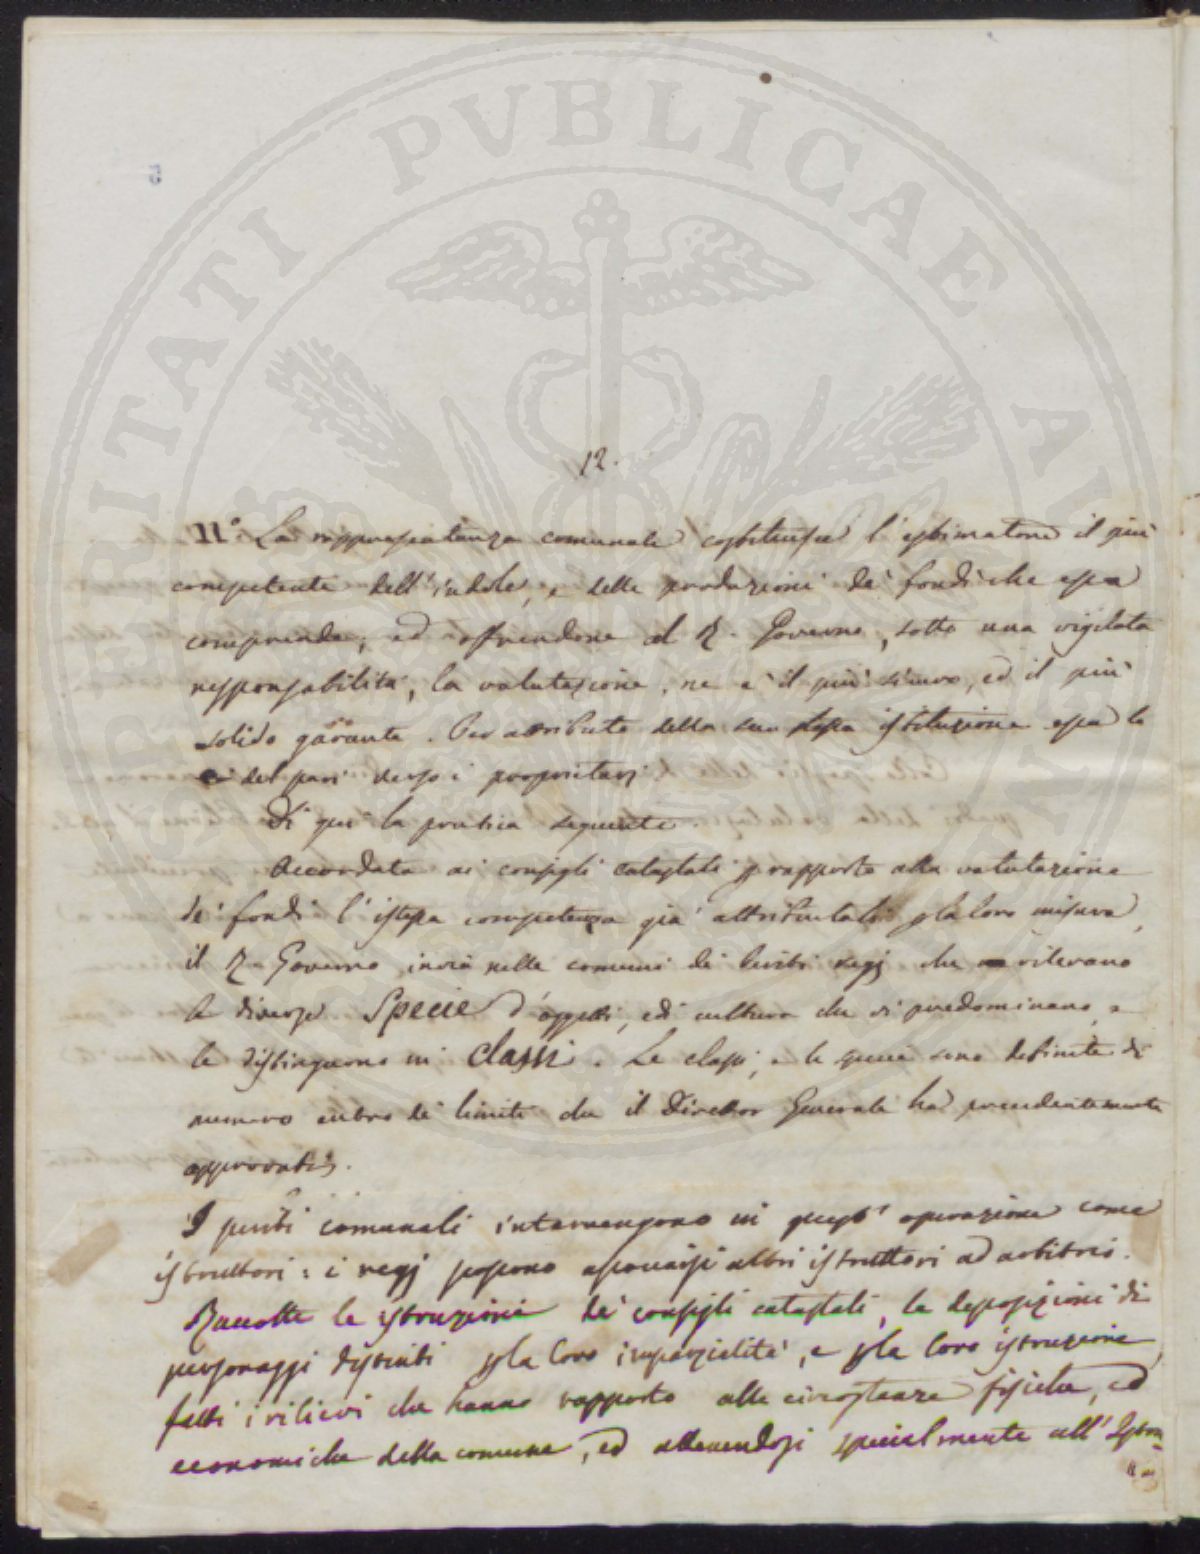 PROSPERITATI PUBLICAE AUGENDAE
12.
11.° La rappresentanza comunale costituisce l'estimatore il più
competente dell'indole, e delle produzioni de' fondi che essa
comprende, ed offrendone al R. Governo, sotto una vigilata
responsabilità, la valutazione, ne è il più sicuro, ed il più
solido garante. Per attributo della sua stessa istituzione essa lo
è del pari verso i proprietarj
Di qui la pratica seguente.
Accordata ai consigli catastali p rapporto alla valutazione
de' fondi l'istessa competenza già attribuitali p la loro misura,
il R. Governo invia nelle comuni de' periti regj che rilevano
le diverse Specie d'oggetti, e di cultura che vi predominano, e
le distinguono in Classi. Le classi, e le specie sono definite di
numero entro de' limiti che il Director Generale ha precedentemente
approvati.
I periti comunali intervengono in quest'operazione come
istruttori: i regj possono associarsi altri istruttori ad arbitrio.
Raccolte le istruzioni de' consigli catastali, le deposizioni di
personaggi distinti p la loro imparzialità, e p la loro istruzione,
fatti i rilievi che hanno rapporto alle circostanze fisiche, ed
economiche della comune, ed attenendosi specialmente all'Istru-